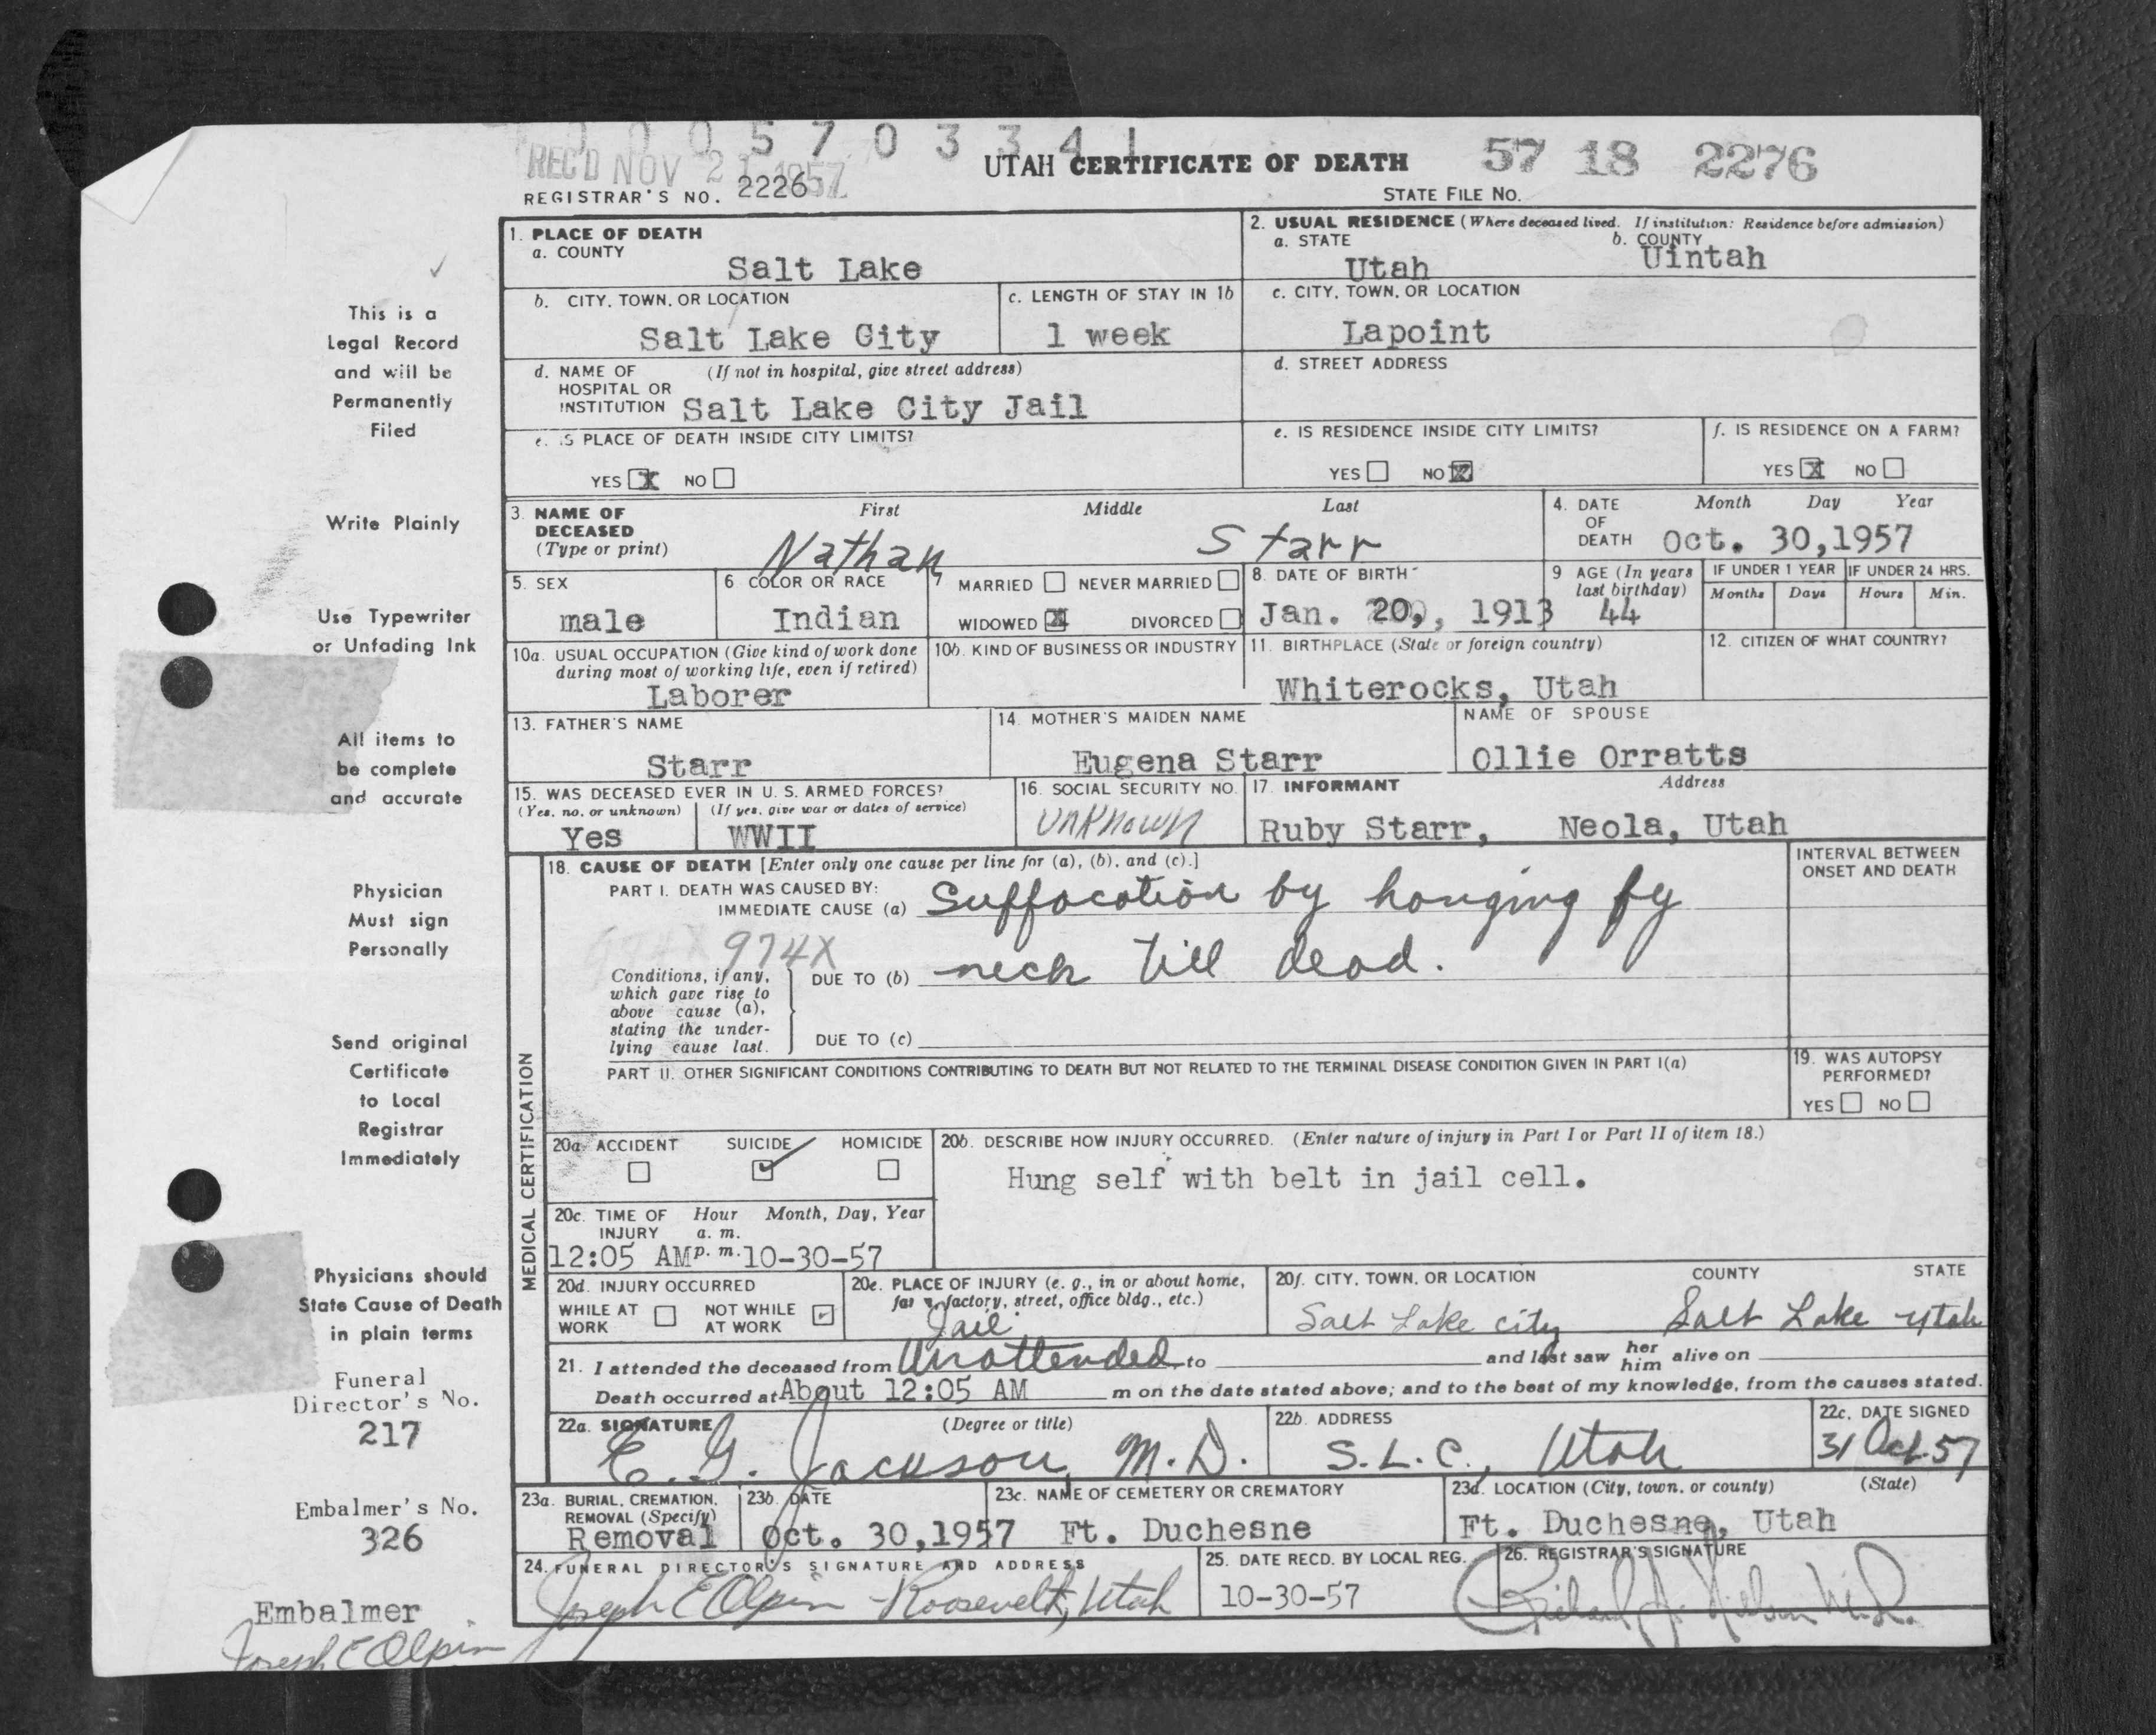 0 0 0 5 7 0 3 3 4 1
REC'D NOV 21 1957
UTAH CERTIFICATE OF DEATH
57 18 2276
REGISTRAR'S NO. 2226
STATE FILE NO.
1. PLACE OF DEATH
a. COUNTY
Salt Lake
2. USUAL RESIDENCE (Where deceased lived. If institution: Residence before admission)
a. STATE
Utah
b. COUNTY
Uintah
b. CITY, TOWN, OR LOCATION
Salt Lake City
c. LENGTH OF STAY IN 1b
1 week
c. CITY, TOWN, OR LOCATION
Lapoint
d. NAME OF (If not in hospital, give street address)
HOSPITAL OR
INSTITUTION Salt Lake City Jail
d. STREET ADDRESS
e. IS PLACE OF DEATH INSIDE CITY LIMITS?
YES X NO
e. IS RESIDENCE INSIDE CITY LIMITS?
YES NO X
f. IS RESIDENCE ON A FARM?
YES X NO
3. NAME OF DECEASED
(Type or print)
First Middle Last
Nathan Starr
4. DATE OF DEATH
Month Day Year
Oct. 30,1957
5. SEX
male
6. COLOR OR RACE
Indian
7 MARRIED NEVER MARRIED
WIDOWED X DIVORCED
8. DATE OF BIRTH
Jan. 20, 1913
9 AGE (In years last birthday)
44
IF UNDER 1 YEAR
Months Days
IF UNDER 24 HRS.
Hours Min.
10a. USUAL OCCUPATION (Give kind of work done
during most of working life, even if retired)
Laborer
10b. KIND OF BUSINESS OR INDUSTRY
11. BIRTHPLACE (State or foreign country)
Whiterocks, Utah
12. CITIZEN OF WHAT COUNTRY?
13. FATHER'S NAME
Starr
14. MOTHER'S MAIDEN NAME
Eugena Starr
NAME OF SPOUSE
Ollie Orratts
15. WAS DECEASED EVER IN U. S. ARMED FORCES?
(Yes, no, or unknown) (If yes, give war or dates of service)
Yes WWII
16. SOCIAL SECURITY NO.
unknown
17. INFORMANT Address
Ruby Starr, Neola, Utah
MEDICAL CERTIFICATION
18. CAUSE OF DEATH [Enter only one cause per line for (a), (b), and (c).]
INTERVAL BETWEEN
ONSET AND DEATH
PART I. DEATH WAS CAUSED BY:
IMMEDIATE CAUSE (a) Suffocation by hanging by
974X
Conditions, if any,
which gave rise to
above cause (a),
stating the under-
lying cause last.
DUE TO (b) neck till dead.
DUE TO (c)
PART II. OTHER SIGNIFICANT CONDITIONS CONTRIBUTING TO DEATH BUT NOT RELATED TO THE TERMINAL DISEASE CONDITION GIVEN IN PART I(a)
19. WAS AUTOPSY
PERFORMED?
YES NO
20a. ACCIDENT SUICIDE ✓ HOMICIDE
20b. DESCRIBE HOW INJURY OCCURRED. (Enter nature of injury in Part I or Part II of item 18.)
Hung self with belt in jail cell.
20c. TIME OF Hour Month, Day, Year
INJURY a. m.
12:05 AM p. m. 10-30-57
20d. INJURY OCCURRED
WHILE AT WORK NOT WHILE AT WORK ✓
20e. PLACE OF INJURY (e. g., in or about home,
farm, factory, street, office bldg., etc.)
Jail
20f. CITY, TOWN, OR LOCATION COUNTY STATE
Salt Lake city Salt Lake Utah
21. I attended the deceased from Unattended to and last saw her him alive on
Death occurred at About 12:05 AM m on the date stated above; and to the best of my knowledge, from the causes stated.
22a. SIGNATURE (Degree or title)
E. G. Jackson M.D.
22b. ADDRESS
S.L.C., Utah
22c. DATE SIGNED
31 Oct. 57
23a. BURIAL, CREMATION,
REMOVAL (Specify)
Removal
23b. DATE
Oct. 30,1957
23c. NAME OF CEMETERY OR CREMATORY
Ft. Duchesne
23d. LOCATION (City, town, or county) (State)
Ft. Duchesne, Utah
24. FUNERAL DIRECTOR'S SIGNATURE AND ADDRESS
Joseph E Olpin - Roosevelt, Utah
25. DATE RECD. BY LOCAL REG.
10-30-57
26. REGISTRAR'S SIGNATURE
This is a
Legal Record
and will be
Permanently
Filed
Write Plainly
Use Typewriter
or Unfading Ink
All items to
be complete
and accurate
Physician
Must sign
Personally
Send original
Certificate
to Local
Registrar
Immediately
Physicians should
State Cause of Death
in plain terms
Funeral
Director's No.
217
Embalmer's No.
326
Embalmer
Joseph E Olpin